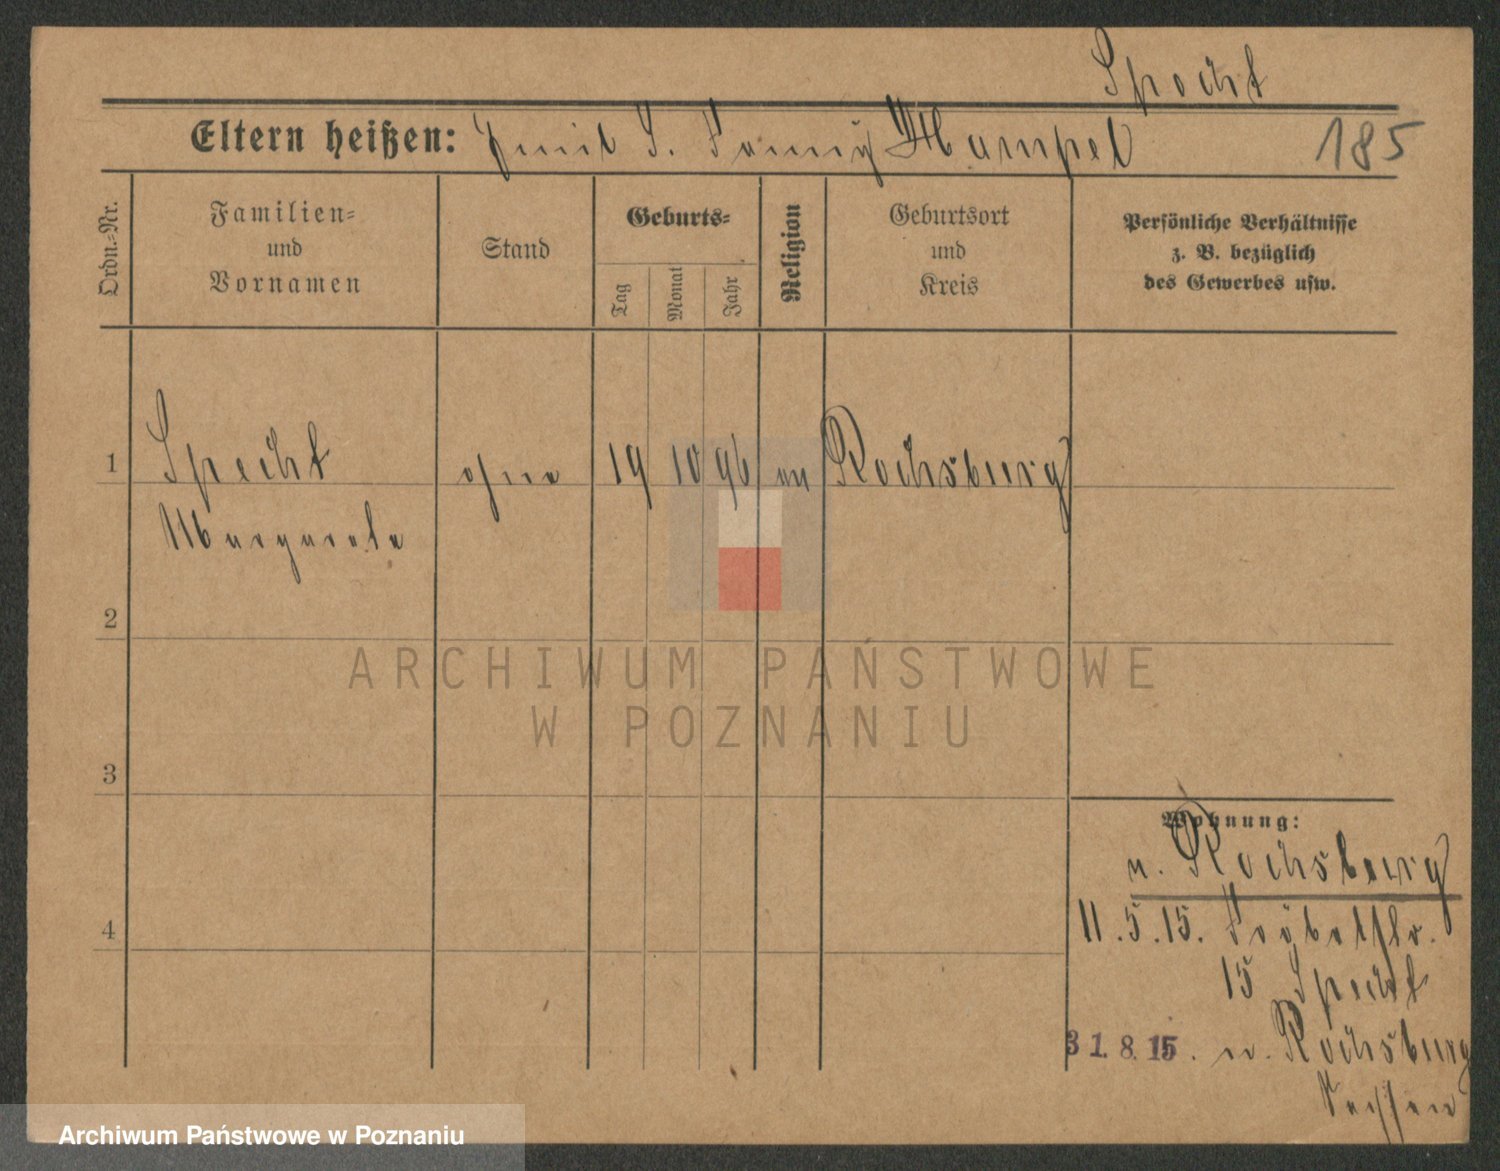 Specht
Eltern heißen: Emil S. Fanny Hampel 185
Ordn.-Nr.
Familien=
und
Vornamen
Stand
Geburts=
Tag
Monat
Jahr
Religion
Geburtsort
und
Kreis
Persönliche Verhältnisse
z. B. bezüglich
des Gewerbes usw.
1 Specht ohne 19 10 96 ev Rochsburg
Margarete
2
3
4
Wohnung:
v. Rochsburg
11.5.15. Fröbelstr.
15 Specht
31.8.15. n. Rochsburg
Sachsen
ARCHIWUM PAŃSTWOWE
W POZNANIU
Archiwum Państwowe w Poznaniu